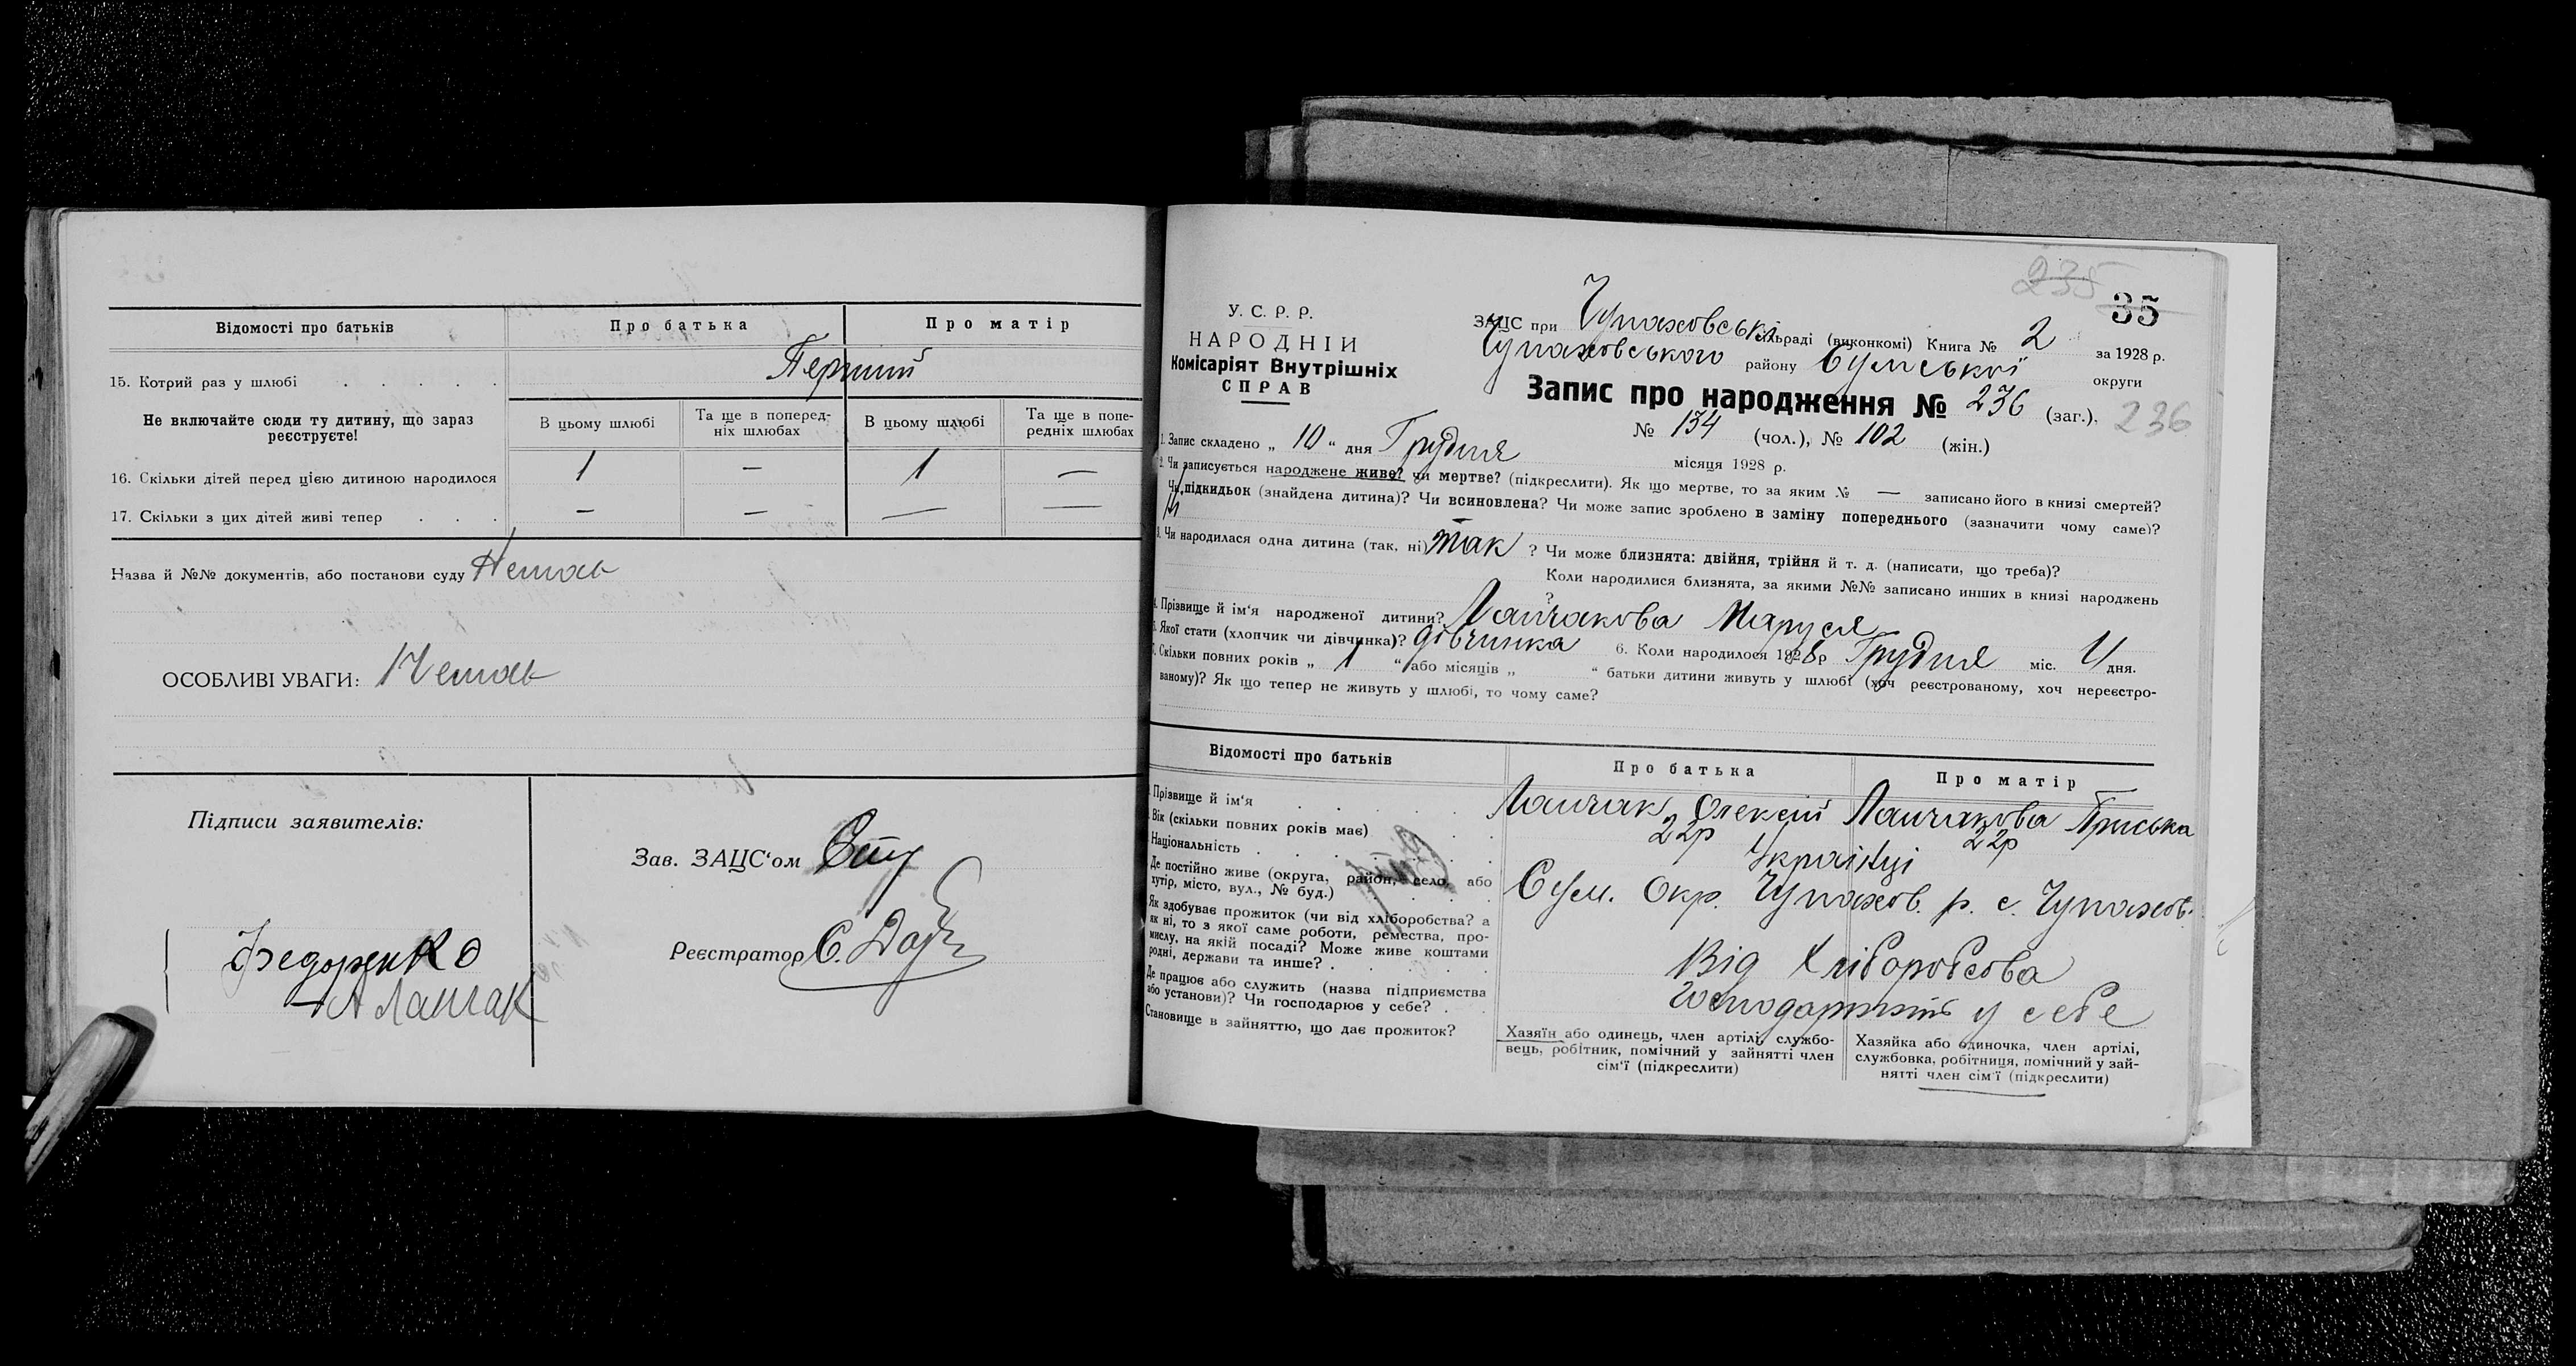 Відомості про батьків
Про батька
Про матір
15. Котрий раз у шлюбі . . . . .
Перший
Не включайте сюди ту дитину, що зараз реєструєте!
В цьому шлюбі
Та ще в поперед-
ніх шлюбах
В цьому шлюбі
Та ще в попе-
редніх шлюбах
16. Скільки дітей перед цією дитиною народилося
1 — 1 —
17. Скільки з цих дітей живі тепер . . .
— — — —
Назва й №№ документів, або постанови суду Немає
ОСОБЛИВІ УВАГИ: Немає
Підписи заявителів:
Федоренко
А Лапчак
Зав. ЗАЦС'ом
Реєстратор С.
235
35
У. С. Р. Р.
НАРОДНІЙ
Комісаріят Внутрішніх
СПРАВ
ЗАЦС при Чупахівській сільраді (виконкомі) Книга № 2 за 1928 р.
Чупаховського району Сумської округи
Запис про народження № 236 (заг.), 236
№ 134 (чол.), № 102 (жін.)
1. Запис складено „ 10 “ дня Грудня місяця 1928 р.
2. Чи записується народжене живе? чи мертве? (підкреслити). Як що мертве, то за яким № — записано його в книзі смертей?
Чи підкидьок (знайдена дитина)? Чи всиновлена? Чи може запис зроблено в заміну попереднього (зазначити чому саме)?
3. Чи народилася одна дитина (так, ні) так ? Чи може близнята: двійня, трійня й т. д. (написати, що треба)?
Коли народилися близнята, за якими №№ записано инших в книзі народжень
?
4. Прізвище й ім'я народженої дитини? Лапчакова Маруся
5. Якої стати (хлопчик чи дівчинка)? дівчинка 6. Коли народилося 1928 р Грудня міс. 4 дня.
7. Скільки повних років „ 1 “ або місяців „ “ батьки дитини живуть у шлюбі (хоч реєстрованому, хоч нереєстро-
ваному)? Як що тепер не живуть у шлюбі, то чому саме?
Відомості про батьків
Про батька
Про матір
Прізвище й ім'я . . . . .
Лапчак Олексій
Лапчакова Приська
Вік (скільки повних років має) . .
22р
22р
Національність . . . . . . .
Українці
Де постійно живе (округа, район, село, або
хутір, місто, вул., № буд.) . . . .
Сум. Окр. Чупахов. р. с. Чупахов.
Як здобуває прожиток (чи від хліборобства? а
як ні, то з якої саме роботи, ремества, про-
мислу, на якій посаді? Може живе коштами
родні, держави та инше? . . . . .
Від Хліборобсова
Де працює або служить (назва підприємства
або установи)? Чи господарює у себе? . .
господарюють у себе
Становище в зайняттю, що дає прожиток?
Хазяїн або одинець, член артілі, службо-
вець, робітник, помічний у зайнятті член
сім'ї (підкреслити)
Хазяйка або одиночка, член артілі,
службовка, робітниця, помічний у зай-
нятті член сім'ї (підкреслити)